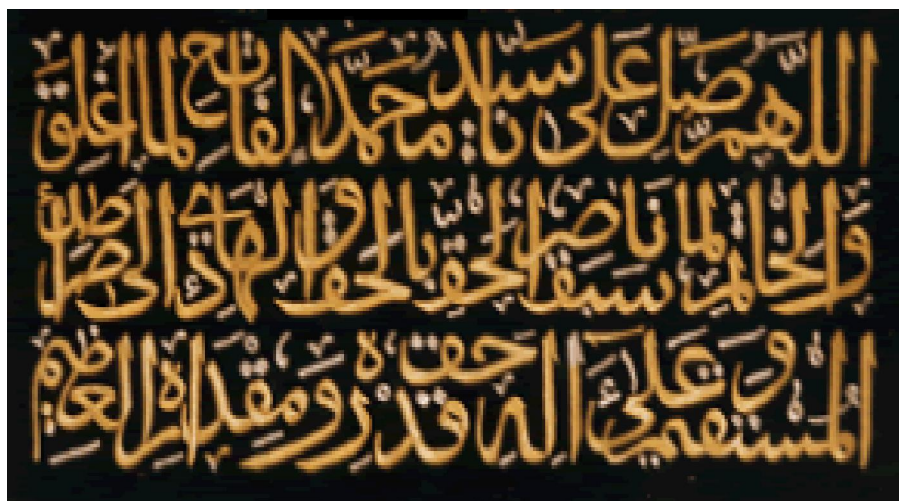 اللهم صل على سيدنا محمد الفاتح لما اغلق
والخاتم لما سبق ناصر الحق بالحق والهادي الى صراطك
المستقيم وعلى اله حق قدره ومقداره العظيم